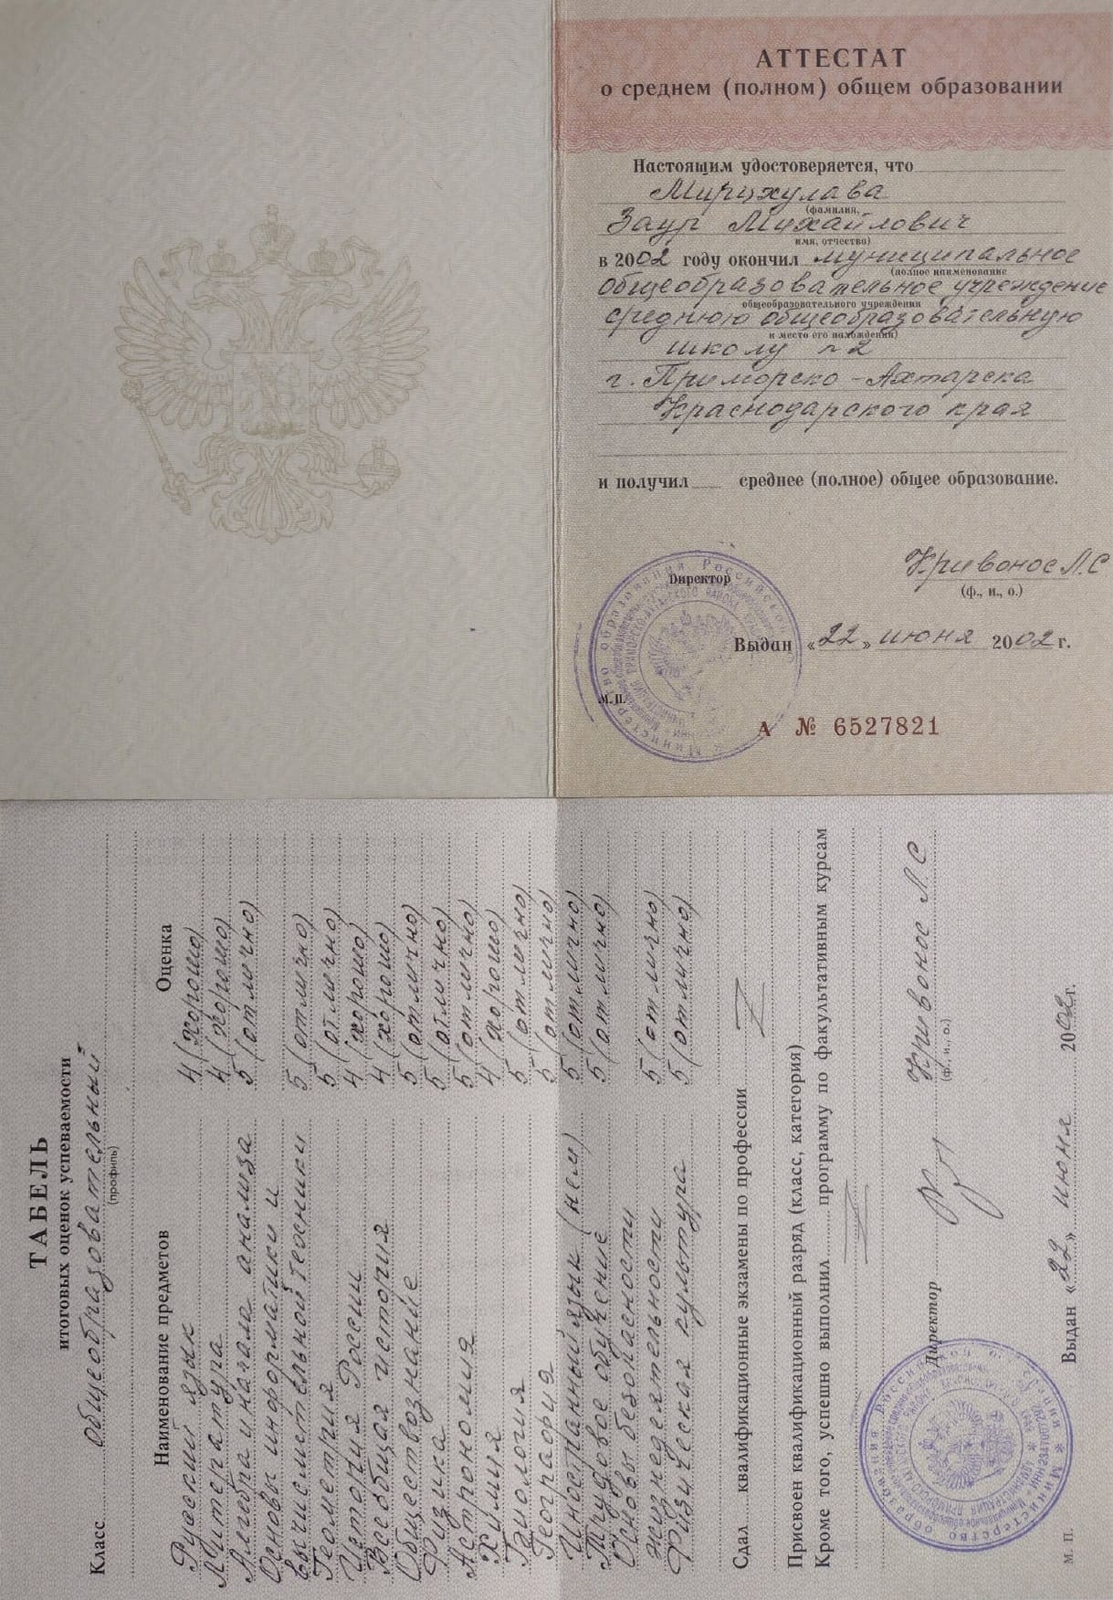 АТТЕСТАТ
о среднем (полном) общем образовании
Настоящим удостоверяется, что
Мирцхулава
(фамилия,
Заур Михайлович
имя, отчество)
в 2002 году окончил муниципальное
(полное наименование
общеобразовательное учреждение
общеобразовательного учреждения
среднюю общеобразовательную
и место его нахождения)
школу №2
г. Приморско-Ахтарска
Краснодарского края
и получил среднее (полное) общее образование.
Директор
Кривонос Л.С
(ф., и., о.)
Выдан «22» июня 2002 г.
М.П.
А № 6527821
ТАБЕЛЬ
итоговых оценок успеваемости
Класс общеобразовательный
(профиль)
Наименование предметов Оценка
Русский язык 4 (хорошо)
Литература 4 (хорошо)
Алгебра и начала анализа 5 (отлично)
Основы информатики и
вычислительной техники 5 (отлично)
Геометрия 5 (отлично)
История России 4 (хорошо)
Всеобщая история 4 (хорошо)
Обществознание 5 (отлично)
Физика 5 (отлично)
Астрономия 5 (отлично)
Химия 4 (хорошо)
Биология 5 (отлично)
География 5 (отлично)
Иностранный язык (нем) 5 (отлично)
Трудовое обучение 5 (отлично)
Основы безопасности
жизнедеятельности 5 (отлично)
Физическая культура 5 (отлично)
Сдал квалификационные экзамены по профессии
Присвоен квалификационный разряд (класс, категория)
Кроме того, успешно выполнил программу по факультативным курсам
Директор Кривонос Л С
(ф., и., о.)
Выдан «22» июня 2002г.
М. П.